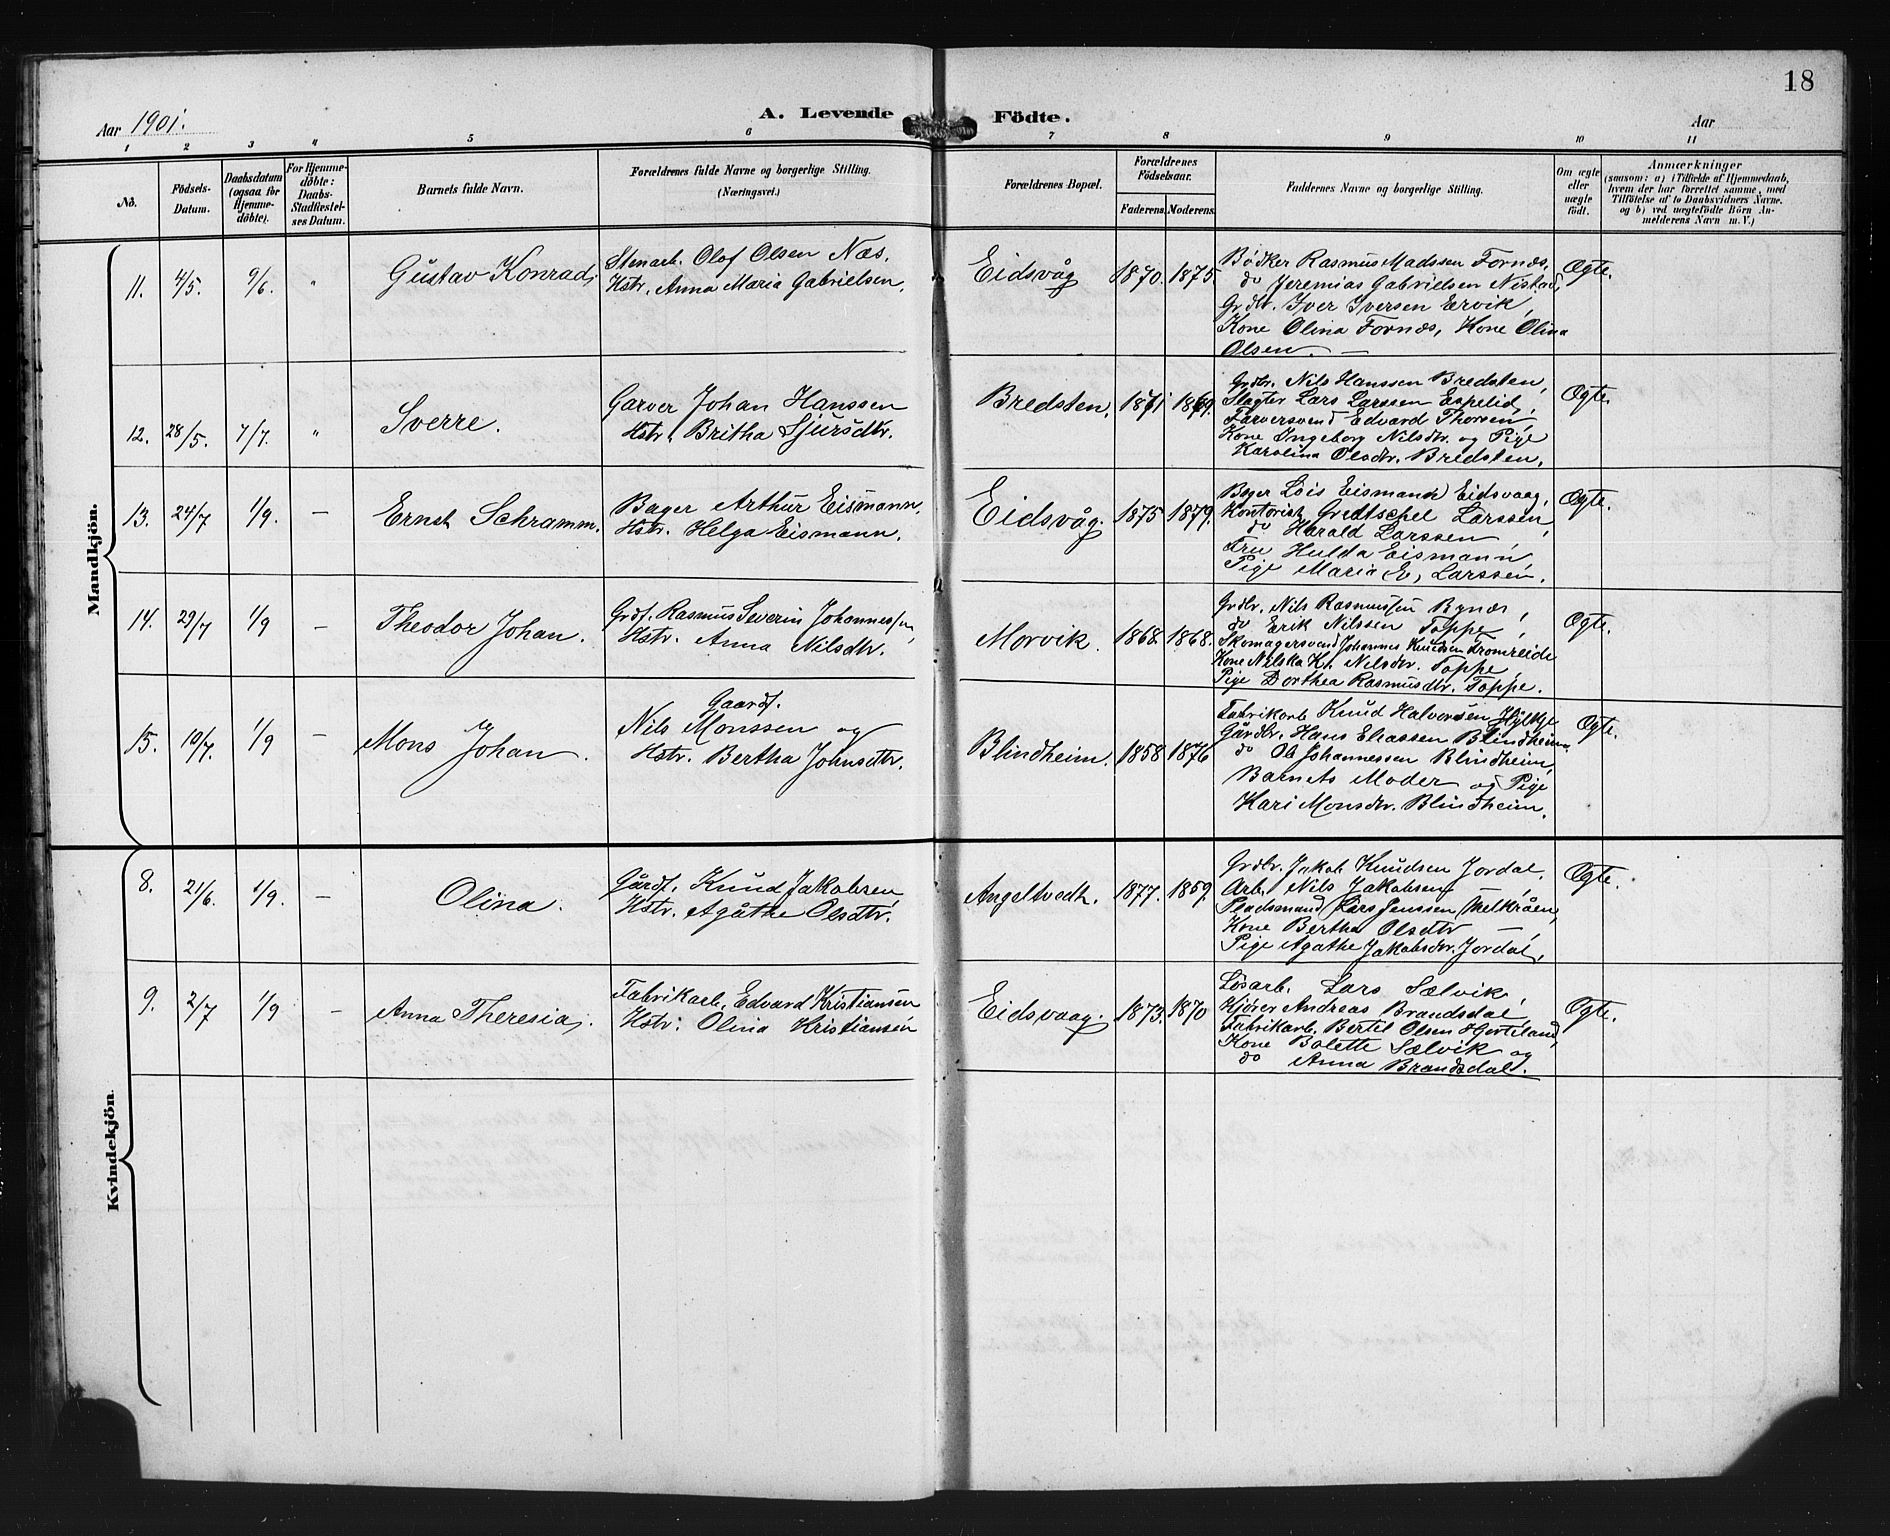 18
A. Levende Födte.
Aar 1901.
Aar
1 2 3 4 5 6 7 8 9 10 11
No.
Födsels-Datum.
Daabsdatum (ogsaa for Hjemmedöbte).
For Hjemmedöbte: Daabs-Stadfæstelses Datum.
Barnets fulde Navn.
Forældrenes fulde Navne og borgerlige Stilling. (Næringsvei.)
Forældrenes Bopæl.
Forældrenes Födselsaar.
Faderens. Moderens.
Faddernes Navne og borgerlige Stilling.
Om ægte eller uægte födt.
Anmærkninger
(saasom: a) i Tilfælde af Hjemmedaab, hvem der har forrettet samme, med Tilföielse af to Daabsvidners Navne. og b) ved uægtefödte Börn Anmelderens Navn m. V.)
Mandkjön.
11. 4/5. 9/6. " Gustav Konrad,
Stenarb. Olof Olsen Næs,
Hstr. Anna Maria Gabrielsen.
Eidsvåg 1870. 1875.
Bødker Rasmus Madssen Fornæs,
do Jeremias Gabrielsen Nistad,
Grdbr. Iver Iversen Ervik,
Kone Olina Fornæs, Kone Olina
Olsen. —
Ægte.
12. 28/5. 7/7. " Sverre.
Garver Johan Hanssen
Hstr. Britha Sjursdtr.
Bredsten. 1871 1869.
Grdbr. Nils Hanssen Bredsten,
Slagter Lars Larssen Espelid,
Farversvend Edvard Thorsen,
Kone Ingeborg Nilsdtr. og Pige
Karolina Olsdtr. Bredsten.
Ægte.
13. 24/7 1/9. — Ernst Schramm.
Bager Arthur Eismann.
Hstr. Helga Eismann.
Eidsvåg. 1875 1879.
Bager Lois Eismann Eidsvaag,
Kontorist Larssen,
do Harald Larssen,
Fru Hulda Eismann,
Pige Maria E. Larssen.
Ægte.
14. 29/7 1/9 — Theodor Johan.
Grdf. Rasmus Severin Johannessen,
Hstr. Anna Nilsdtr.
Morvik. 1868. 1868.
Grdbr. Nils Rasmussen Bynæs,
do Erik Nilssen Toppe,
Skomagersvend Johannes Knudsen Tromreide
Kone Nilska K. Nilsdtr. Toppe,
Pige Dorthea Rasmusdtr. Toppe.
Ægte.
15. 10/7. 1/9 — Mons Johan.
Gaardf.
Nils Monssen og
Hstr. Bertha Johnsdtr.
Blindheim. 1858 1876
Fabrikarb. Knud Halvorsen Hylkje
Gårdbr. Hans Eliassen Blindheim
do Ole Johannessen Blindheim,
Barnets Moder og Pige
Kari Monsdtr. Blindheim.
Ægte.
Kvindekjön.
8. 21/6. 1/9. — Olina.
Gårdf. Knud Jakobsen,
Hstr. Agåthe Olsdtr.
Angeltvedt. 1877. 1859.
Grdbr. Jakob Knudsen Jordal,
Arb. Nils Jakobsen
Pladsmand Lars Jenssen Melkråen,
Kone Bertha Olsdtr —
Pige Agathe Jakobsdtr. Jordal.
Ægte.
9. 2/7 1/9 — Anna Theresia.
Fabrikarb. Edvard Kristiansen
Hstr. Olina Kristiansen
Eidsvaag. 1873. 1870
Løsarb. Lars Sælvik,
Kjører Andreas Brandsdal,
Fabrikarb. Bertil Olsen Hjorteland,
Kone Bolette Sælvik og
do Anna Brandsdal.
Ægte.